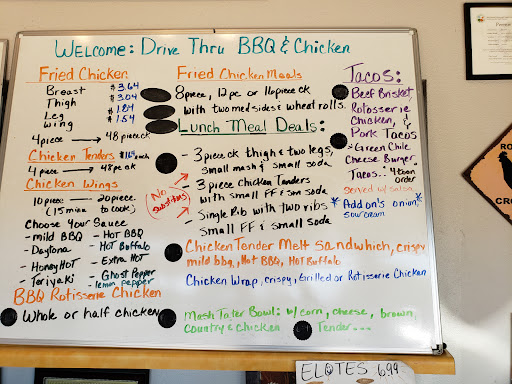 Welcome: Drive Thru BBQ & Chicken
Fried Chicken
Breast $3.64
Thigh $3.04
Leg $1.84
Wing $1.54
4piece → 48piececk
Chicken Tenders each
4 piece → 48pc ck
Chicken Wings
10piece → 20piece
(15 mins to cook)
Choose Your Sauce
- mild BBQ - Hot BBQ
- Daytona - Hot Buffalo
- HoneyHot - Extra Hot
- Teriyaki - Ghost Pepper
- lemon pepper
BBQ Rotisserie Chicken
Whole or half chicken
Fried Chicken Meals
8piece, 12pc or 16piececk
with two med sides & wheat rolls.
Lunch Meal Deals:
- 3 piececk thigh & two legs,
small mash & small soda
- 3 piece Chicken Tenders
with small FF & sm soda
- Single Rib with two ribs
small FF & small soda
No
Chicken Tender Melt Sandwhich, crispy
mild bbq, Hot BBQ, Hot Buffalo
Chicken Wrap, crispy, Grilled or Rotisserie Chicken
Mash Tater Bowl: w/ corn, cheese, brown,
country & chicken Tender...
Tacos:
Beef Brisket
Rotosserie
Chicken, &
Pork Tacos
*Green Chile
Cheese Burger
Tacos.. 4 to an order
Served w/ salsa
*Add on's onion*
sour cream
ELOTES 6.99